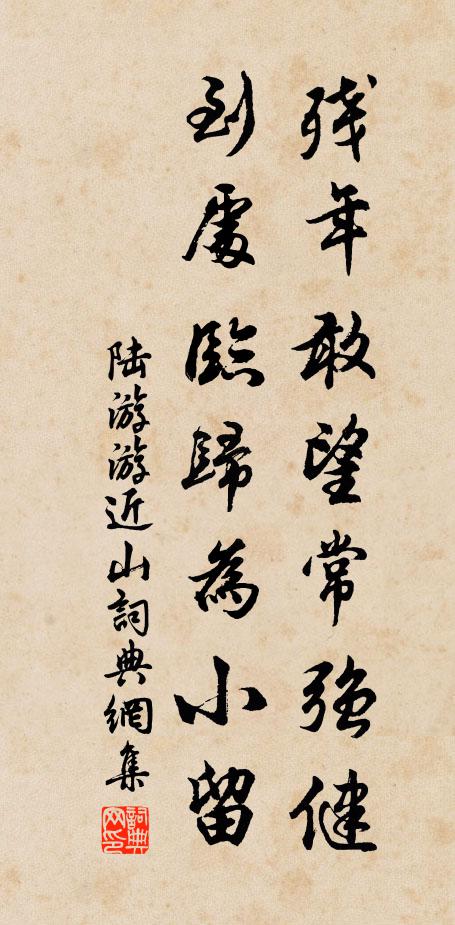 残年敢望常強健
到處臨歸為小留
陸游游近山詞典網集
詞典网印